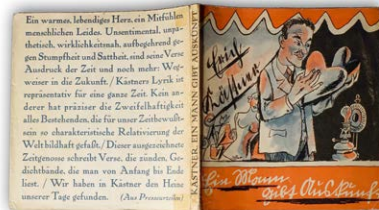 Ein warmes, lebendiges Herz, ein Mitfühlen
menschlichen Leides. Unsentimental, unpa-
thetisch, wirklichkeitsnah, aufbegehrend ge-
gen Stumpfheit und Sattheit, sind seine Verse
Ausdruck der Zeit und noch mehr: Weg-
weiser in die Zukunft. / Kästners Lyrik ist
repräsentativ für eine ganze Zeit. Kein an-
derer hat präziser die Zweifelhaftigkeit
alles Bestehenden, die für unser Zeitbewußt-
sein so charakteristische Relativierung der
Weltbildhaft gefaßt. / Dieser ausgezeichnete
Zeitgenosse schreibt Verse, die zünden, Ge-
dichtbände, die man von Anfang bis Ende
liest. / Wir haben in Kästner den Heine
unserer Tage gefunden. (Aus Presseurteilen)
KÄSTNER, EIN MANN GIBT AUSKUNFT
Erich
Kästner
Ein Mann
gibt Auskunft